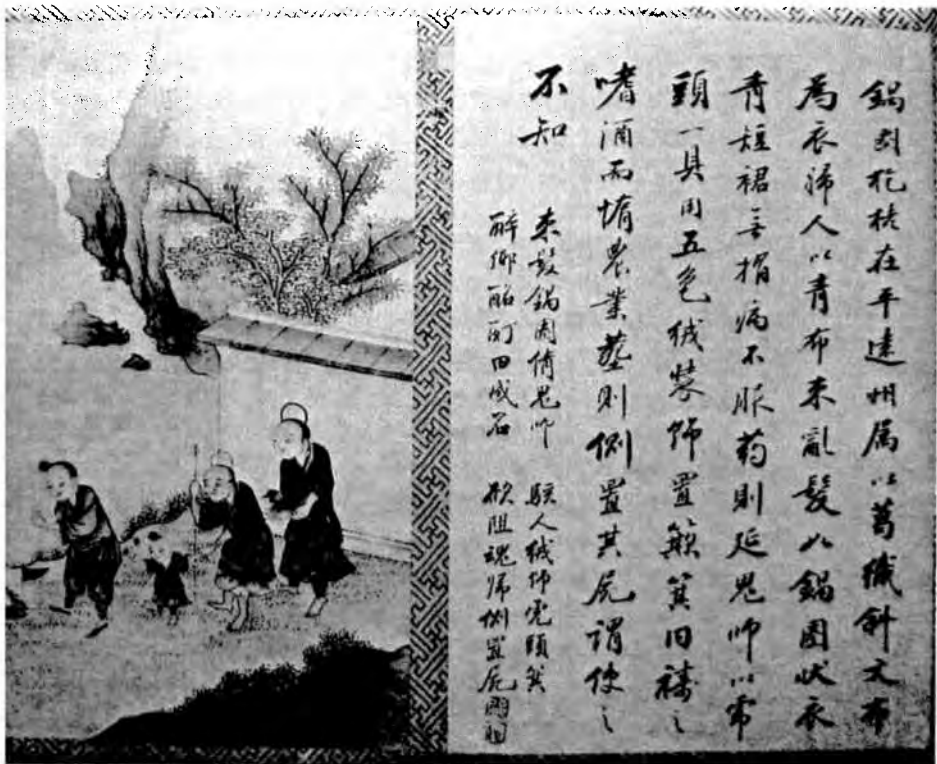 鍋圈犵狫在平遠州属以葛織斜文布
為衣婦人以青布束亂髮如鍋圈状衣
青短裙無褶病不服药則延鬼师以帚
頭一具用五色绒装饰置簸箕内禱之
嗜酒而惰農業塟则側置其尿謂使之
不知
束髮鍋圈倩鬼师 駭人绒饰虎頭箕
醉鄉酩酊田成石 欲阻魂歸側置尿